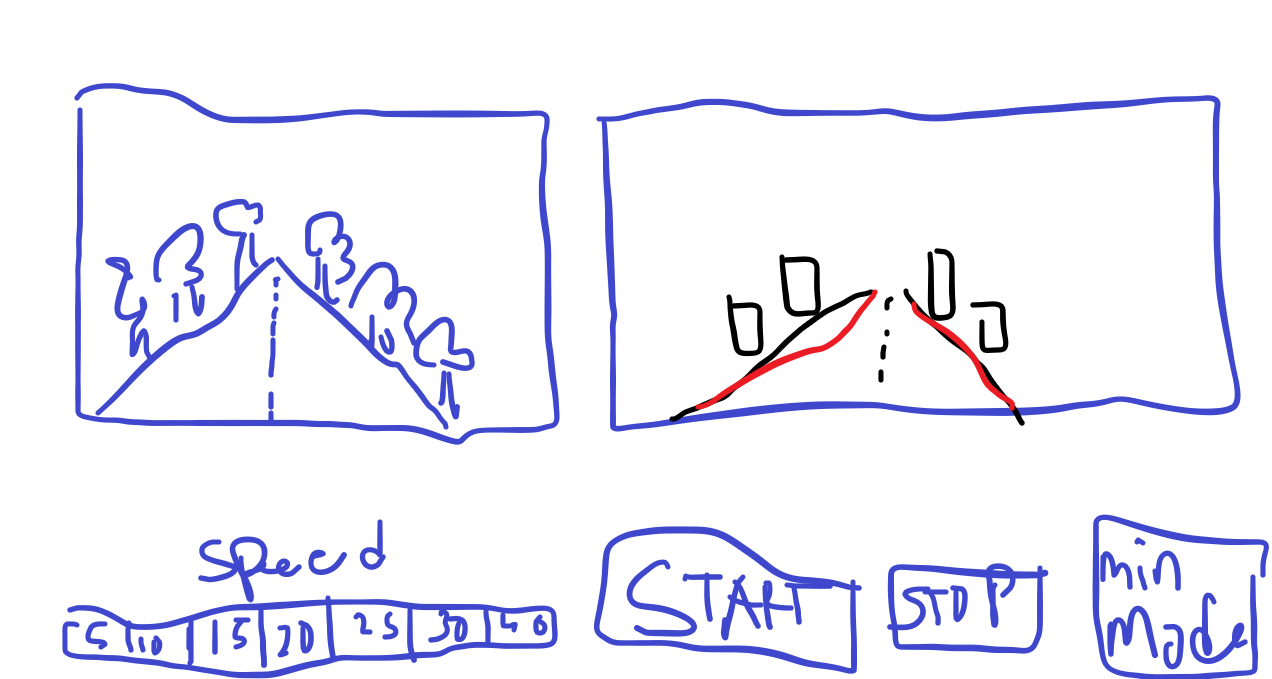 speed
5 10 15 20 25 30 40
START
STOP
min
mode